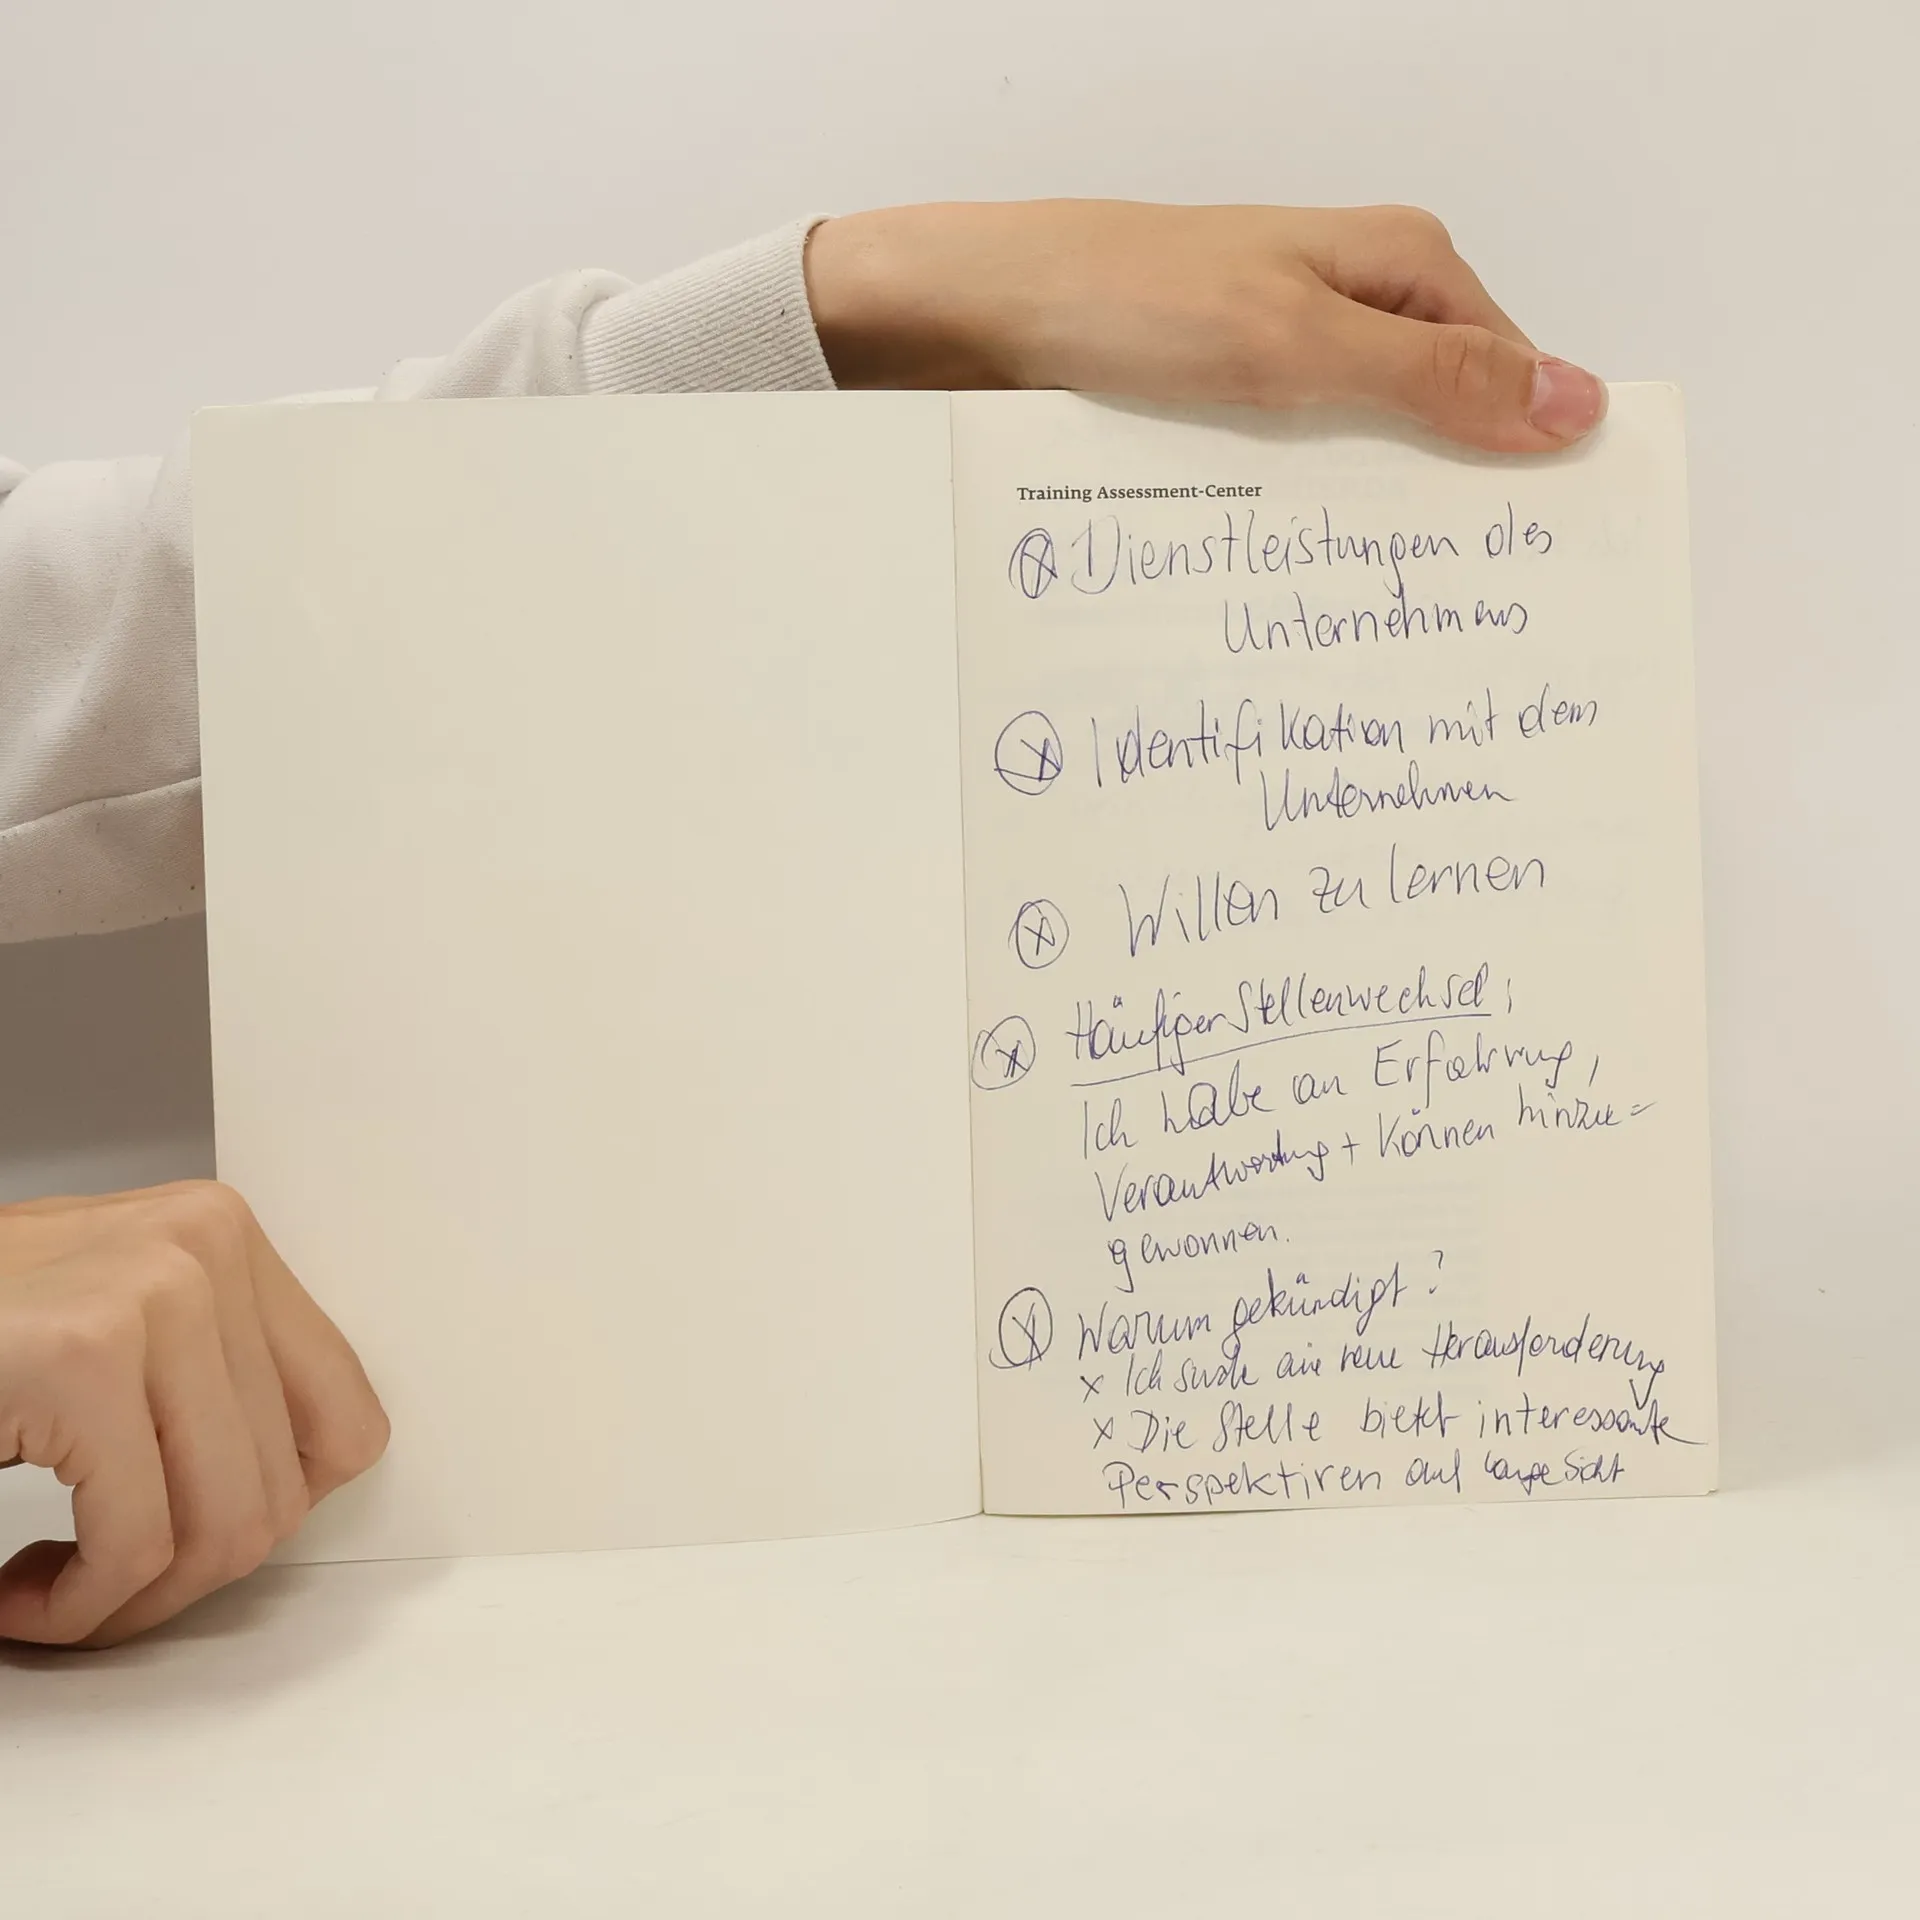 Training Assessment-Center
Dienstleistungen des
Unternehmens
Identifikation mit dem
Unternehmen
Willen zu lernen
Häufiger Stellenwechsel;
Ich habe an Erfahrung,
Verantwortung + Können hinzu=
gewonnen.
Warum gekündigt?
x Ich suche eine neue Herausforderung
x Die Stelle bietet interessante
Perspektiven auf lange Sicht